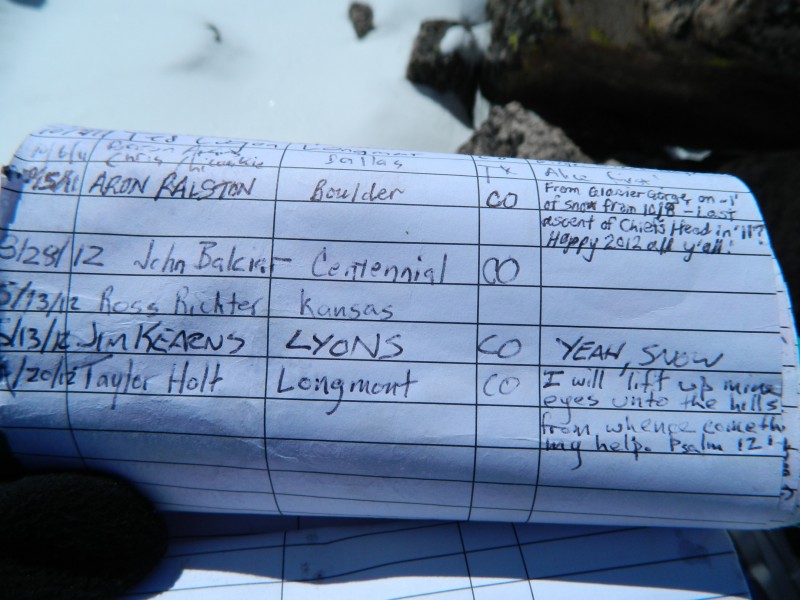 Longmont
10/6/11 Chris Dallas TX
10/15/11 ARON RALSTON Boulder CO From Glacier Gorge, on ~1'
of snow from 10/8 - Last
ascent of Chiefs Head in '11?
Happy 2012 all y'all!
3/28/12 John Centennial CO
5/13/12 Ross Richter Kansas
5/13/12 JIM KEARNS LYONS CO YEAH, SNOW
/20/12 Taylor Holt Longmont CO I will lift up mine
eyes unto the hills
from whence cometh
my help. Psalm 121